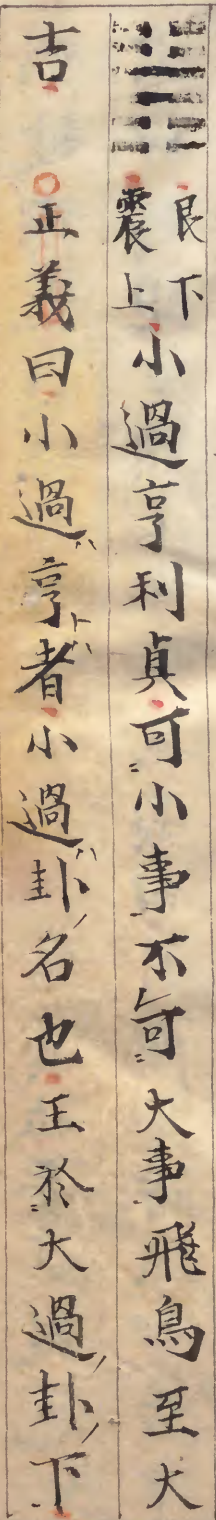 艮下震上小過亨利貞可小事不可大事飛鳥至大
吉　正義曰小過亨者小過卦名也王於大過卦下